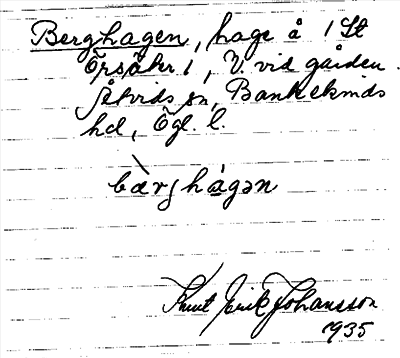 Berghagen, hage å 1 St
Örsåker 1, V. vid gården.
Åtvids sn, Bankekinds
hd, Ögl. l.
bæ̀rjhágən
Knut Erik Johansson
1935